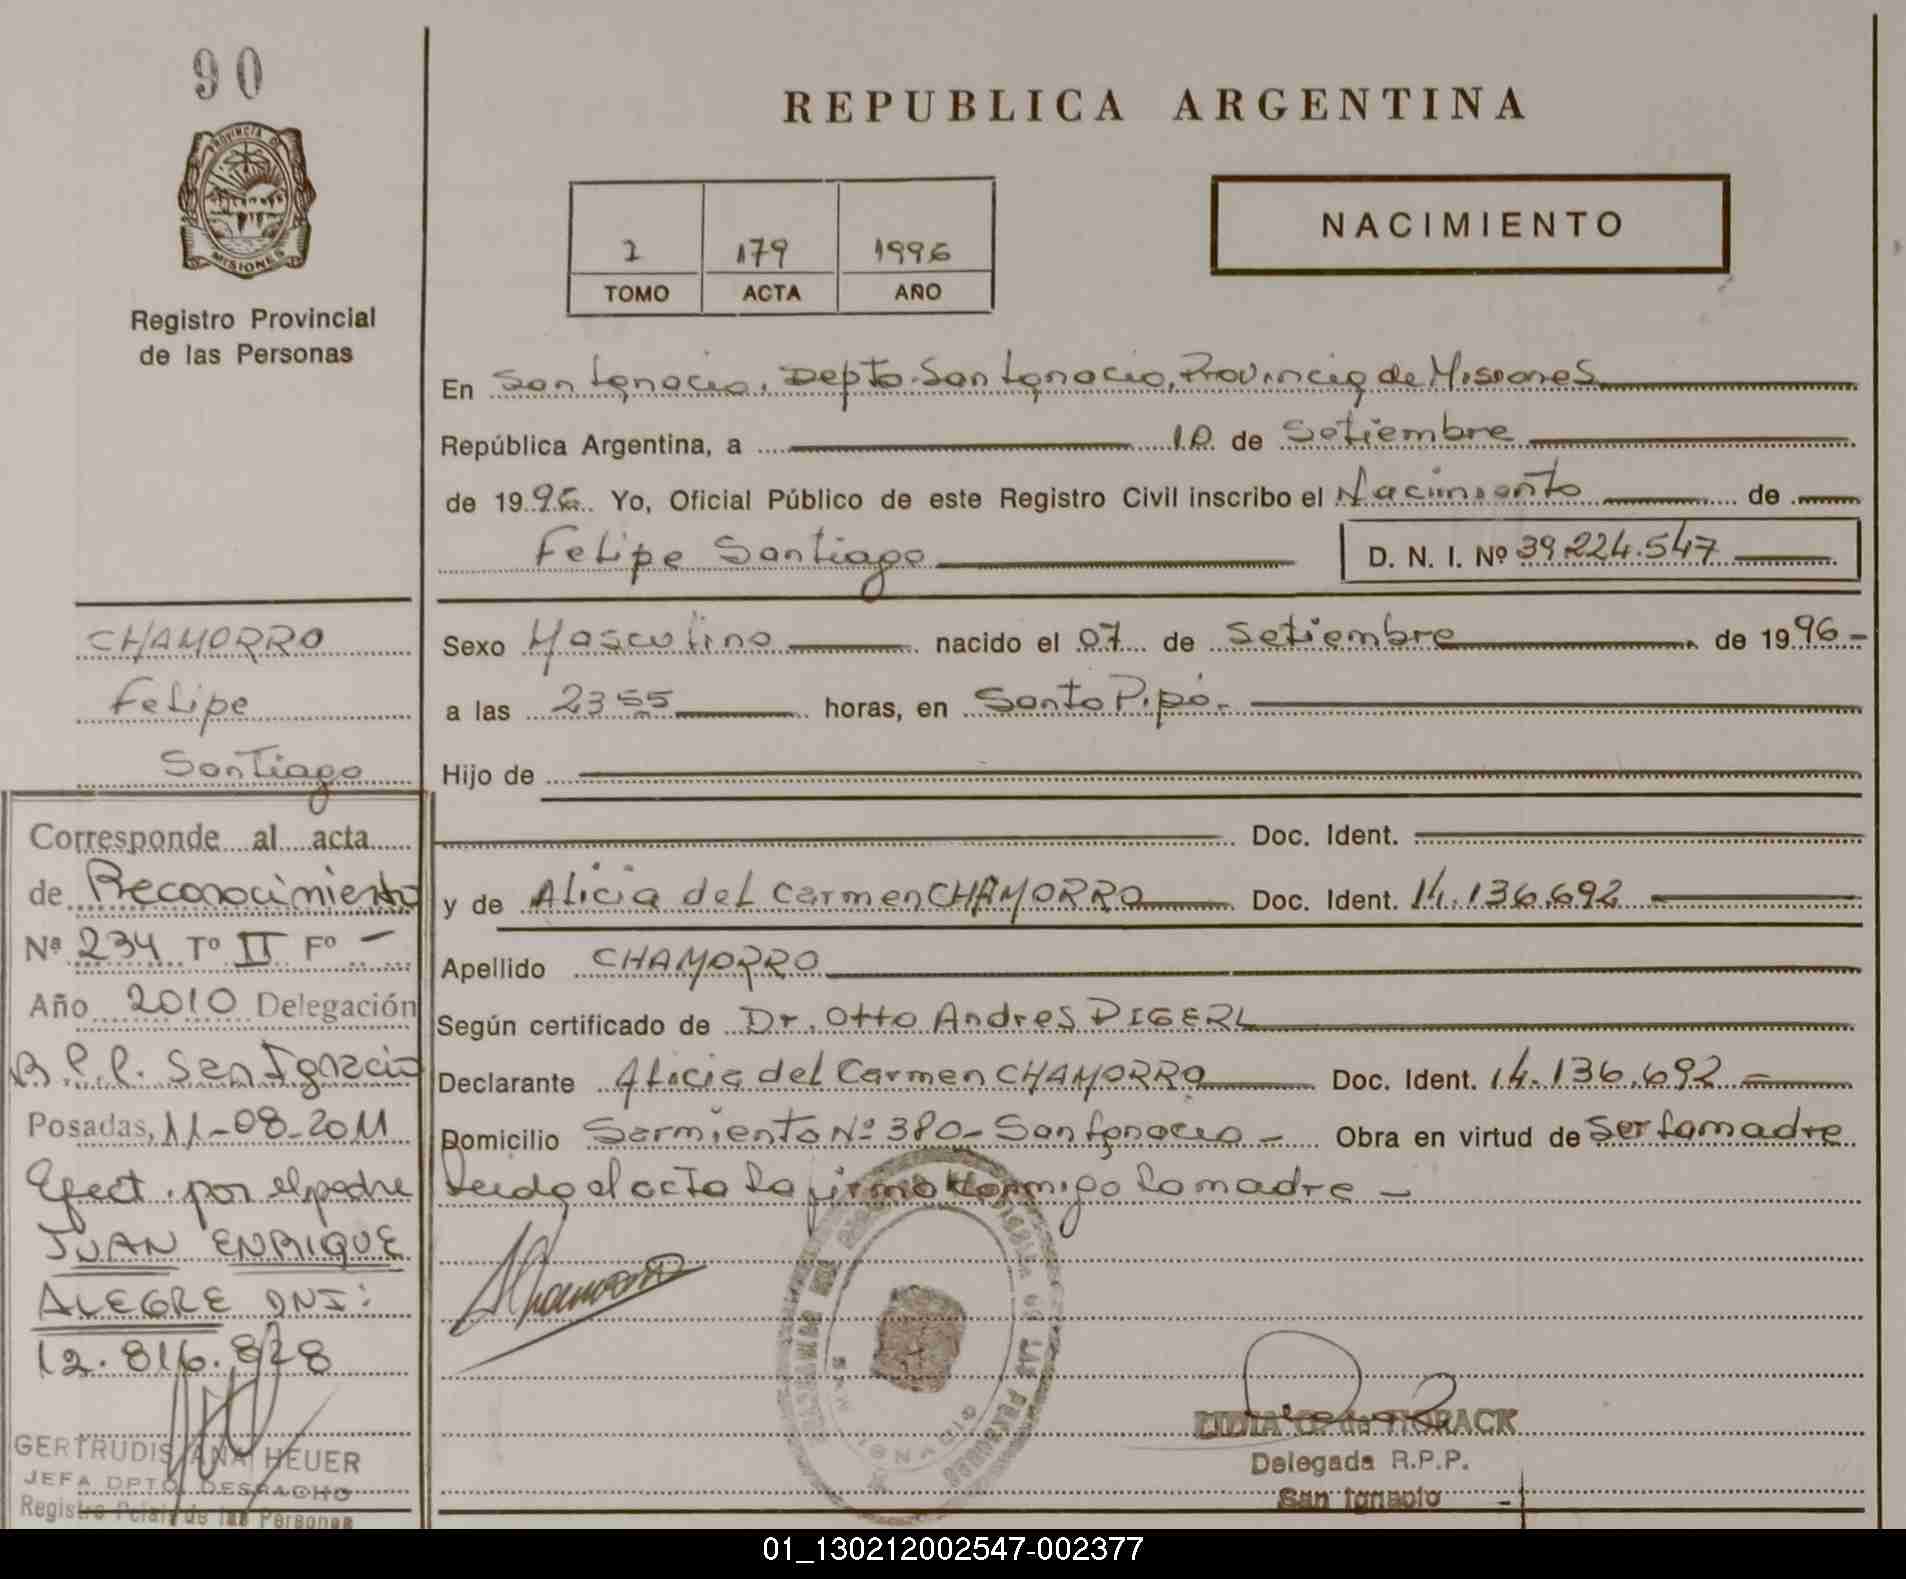 90
PROVINCIA DE
MISIONES
Registro Provincial
de las Personas
REPUBLICA ARGENTINA
2 179 1996
TOMO ACTA AÑO
NACIMIENTO
En San Ignacio, Depto. San Ignacio, Provincia de Misiones
República Argentina, a 10 de Setiembre
de 1996 Yo, Oficial Público de este Registro Civil inscribo el Nacimiento de
Felipe Santiago D. N. I. Nº 39.224.547
CHAMORRO
Felipe
Santiago
Sexo Masculino nacido el 07 de Setiembre de 1996-
a las 23 55 horas, en Santo Pipó.
Hijo de
Doc. Ident.
y de Alicia del Carmen CHAMORRO Doc. Ident. 14.136.692
Apellido CHAMORRO
Según certificado de Dr. Otto Andres DIGERL
Declarante Alicia del Carmen CHAMORRO Doc. Ident. 14.136.692
Domicilio Sarmiento Nº 380- San Ignacio - Obra en virtud de Ser la madre
Leida el acta la firma conmigo la madre -
Corresponde al acta
de Reconocimiento
Nº 234 Tº II Fº -
Año 2010 Delegación
R.P.P. San Ignacio
Posadas, 11-08-2011
Efect. por el padre
JUAN ENRIQUE
ALEGRE DNI:
12.816.828
GERTRUDIS ANA HEUER
JEFA DPTO. DESPACHO
Registro Pcial. de las Personas
AChamorro
DE LAS PERSONAS
LIDIA de HORACK
Delegada R.P.P.
San Ignacio
01_130212002547-002377